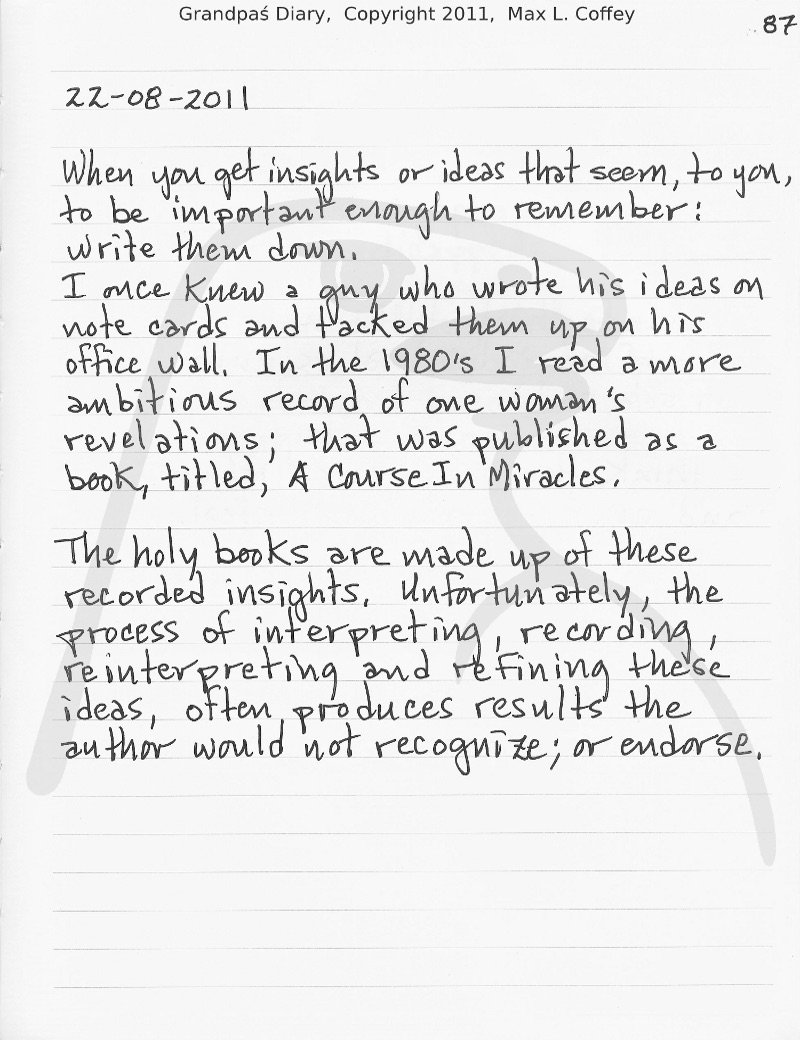 Grandpaś Diary, Copyright 2011, Max L. Coffey
87
22-08-2011
When you get insights or ideas that seem, to you,
to be important enough to remember:
write them down.
I once knew a guy who wrote his ideas on
note cards and tacked them up on his
office wall. In the 1980's I read a more
ambitious record of one woman's
revelations; that was published as a
book, titled, A Course In Miracles.
The holy books are made up of these
recorded insights. Unfortunately, the
process of interpreting, recording,
reinterpreting and refining these
ideas, often produces results the
author would not recognize; or endorse.